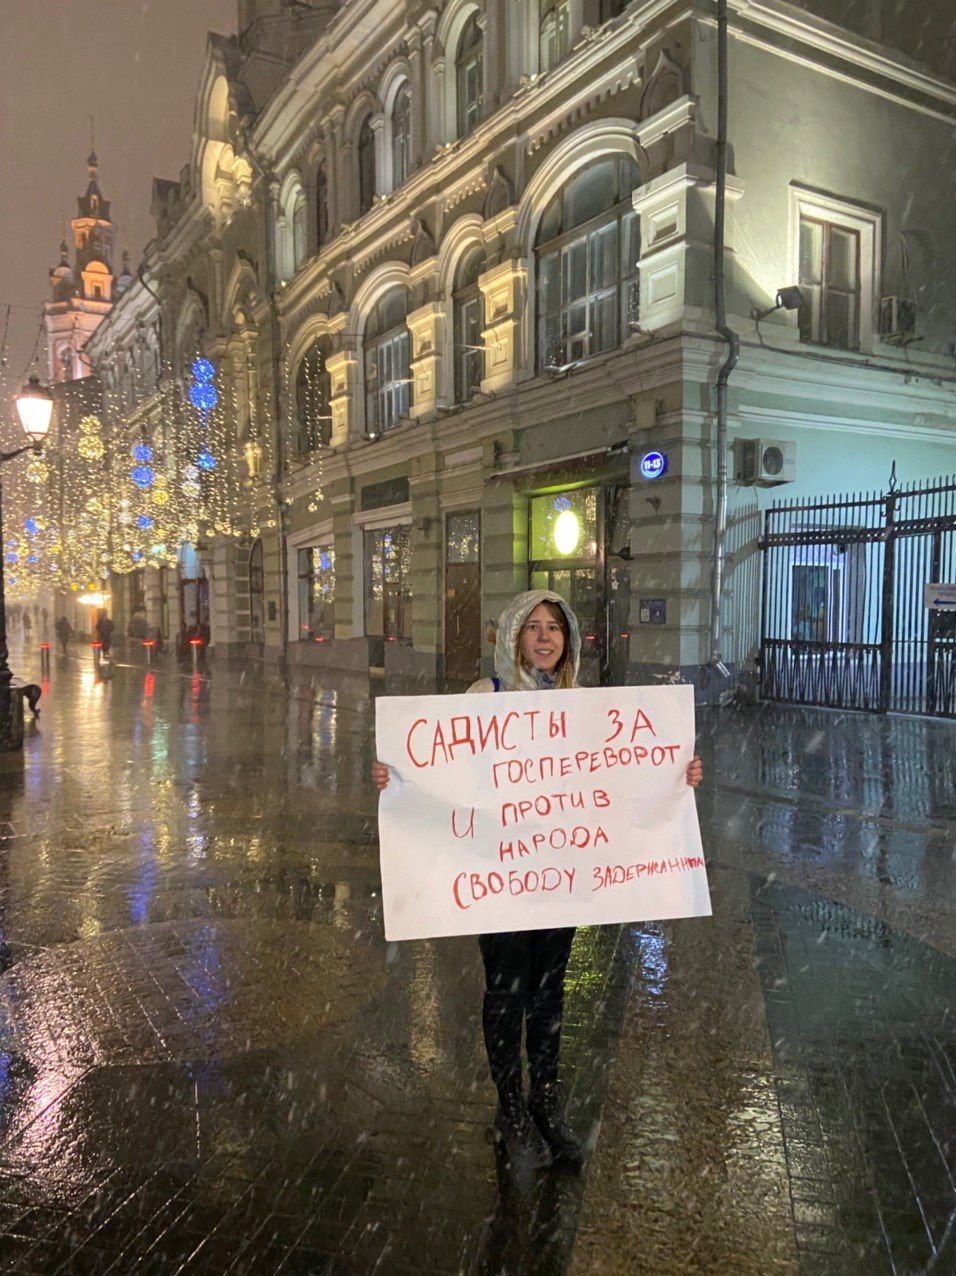 11-13
САДИСТЫ ЗА
ГОСПЕРЕВОРОТ
И ПРОТИВ
НАРОДА
СВОБОДУ ЗАДЕРЖАННЫМ